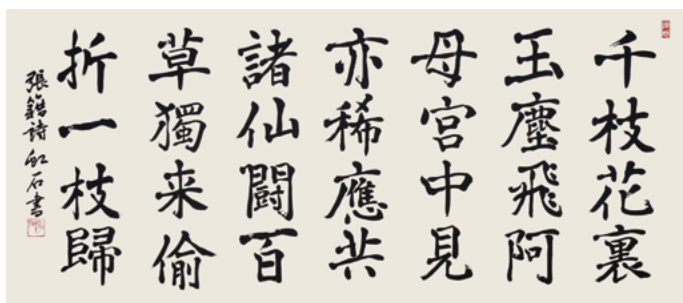 千枝花裏
玉塵飛阿
母宮中見
亦稀應共
諸仙鬪百
草獨来偷
折一枝歸
張籍詩 石書